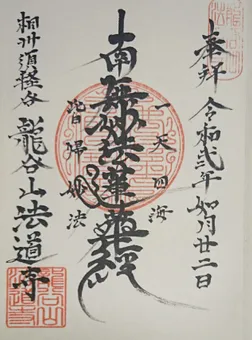 奉拝 令和弐年如月廿二日
一天四海
南無妙法蓮華経
皆帰妙法
相州須軽谷 龍谷山法道寺